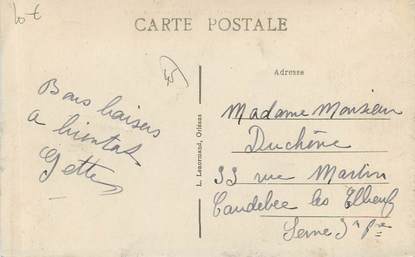 10 €
CARTE POSTALE
45
Adresse
Bons baisers
a bientot
Gette
L. Lenormand, Orléans
Madame Monsieur
Duchêne
33 rue Martin
Caudebec les Elbeuf
Seine Inf re